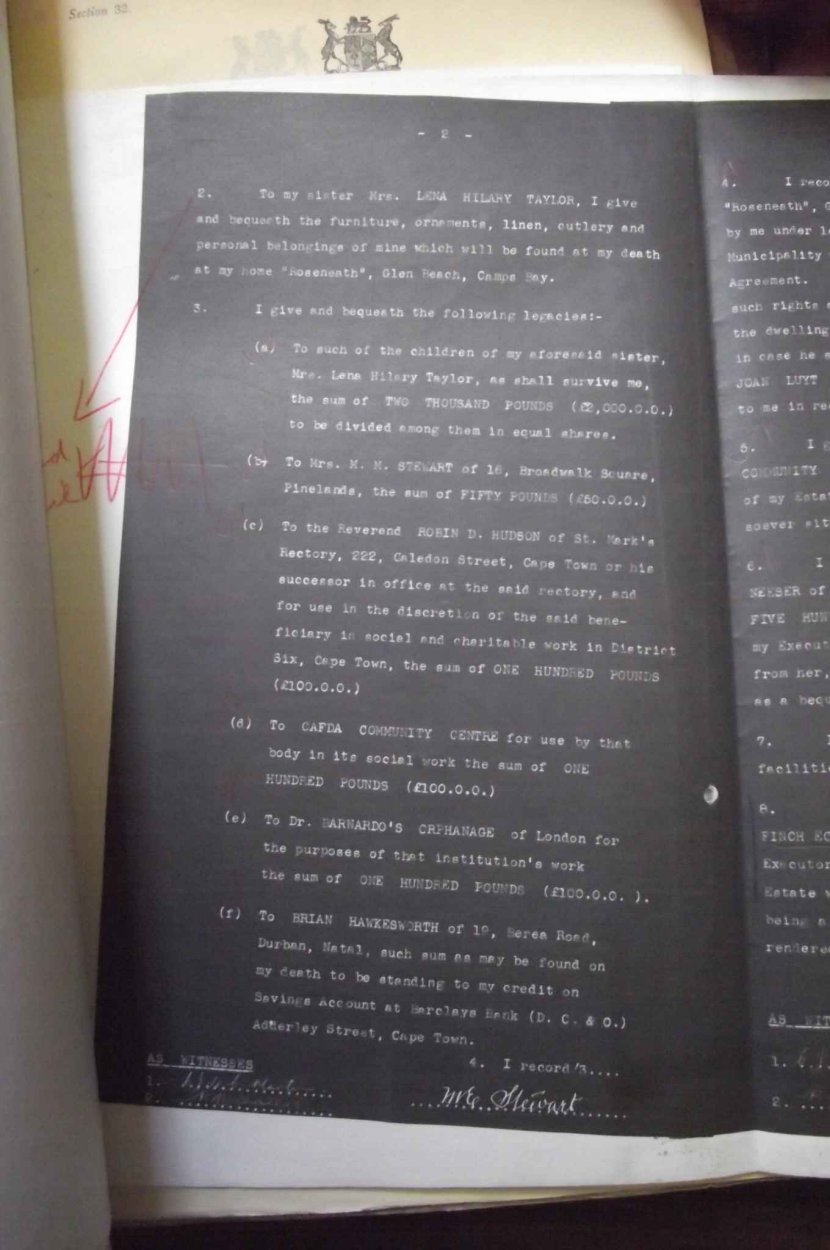 Section 32.
- 2 -
2. To my sister Mrs. LENA HILARY TAYLOR, I give
and bequeath the furniture, ornaments, linen, cutlery and
personal belongings of mine which will be found at my death
at my home "Roseneath", Glen Beach, Camps Bay.
3. I give and bequeath the following legacies:-
(a) To such of the children of my aforesaid sister,
Mrs. Lena Hilary Taylor, as shall survive me,
the sum of TWO THOUSAND POUNDS (£2,000.0.0.)
to be divided among them in equal shares.
(b) To Mrs. M. M. STEWART of 16, Broadwalk Square,
Pinelands, the sum of FIFTY POUNDS (£50.0.0.)
(c) To the Reverend ROBIN D. HUDSON of St. Mark's
Rectory, 222, Caledon Street, Cape Town or his
successor in office at the said rectory, and
for use in the discretion of the said bene-
ficiary in social and charitable work in District
Six, Cape Town, the sum of ONE HUNDRED POUNDS
(£100.0.0.)
(d) To CAFDA COMMUNITY CENTRE for use by that
body in its social work the sum of ONE
HUNDRED POUNDS (£100.0.0.)
(e) To Dr. BARNARDO'S ORPHANAGE of London for
the purposes of that institution's work
the sum of ONE HUNDRED POUNDS (£100.0.0. ).
(f) To BRIAN HAWKESWORTH of 19, Berea Road,
Durban, Natal, such sum as may be found on
my death to be standing to my credit on
Savings Account at Barclays Bank (D. C. & O.)
Adderley Street, Cape Town.
4. I record/3....
AS WITNESSES
1.
2.
Stewart
4. I reco
"Roseneath", G
by me under le
Municipality
Agreement.
such rights a
the dwelling
in case he s
JOAN LUYT
to me in re
5. I g
COMMUNITY
of my Esta
soever sit
6. I
NEESER of
FIVE HUN
my Execut
from her,
as a beq
7. I
faciliti
8.
FINCH EC
Executor
Estate w
being a
rendere
AS WIT
1.
2.